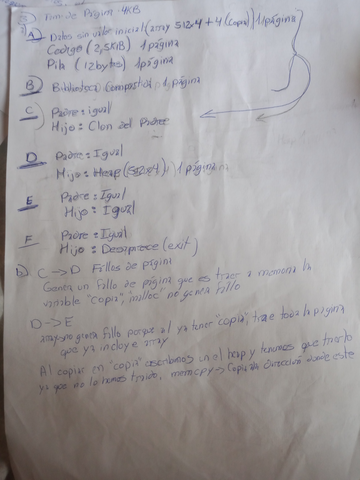 Tam de Página = 4KB
A Datos sin valor inicial (array 512x4 + 4 (copia)) 1 página
Código (2,5KiB) 1 página
Pila (12bytes) 1 página
B) Biblioteca Compartida, 1 página
C) Padre = igual
Hijo: Clon del Padre
D Padre: Igual
Hijo: Heap (512x4) 1 página
E Padre: Igual
Hijo: Igual
F Padre: Igual
Hijo: Desaparece (exit)
b) C → D Fallos de página
Genera un fallo de página que es traer a memoria la
variable "copia", malloc no genera fallo
D → E
array no genera fallo porque al ya tener "copia", trae toda la página
que ya incluye array
Al copiar en "copia" escribimos en el heap y tenemos que traerlo
ya que no lo hemos traido, memcpy → Copia la dirección donde este